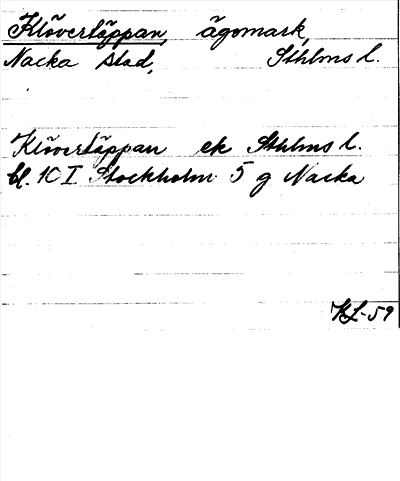 Klövertäppan, ägomark,
Nacka stad, Sthlms l.
Klövertäppan ek Sthlms l.
bl. 10 I Stockholm 5 g Nacka
KL-59